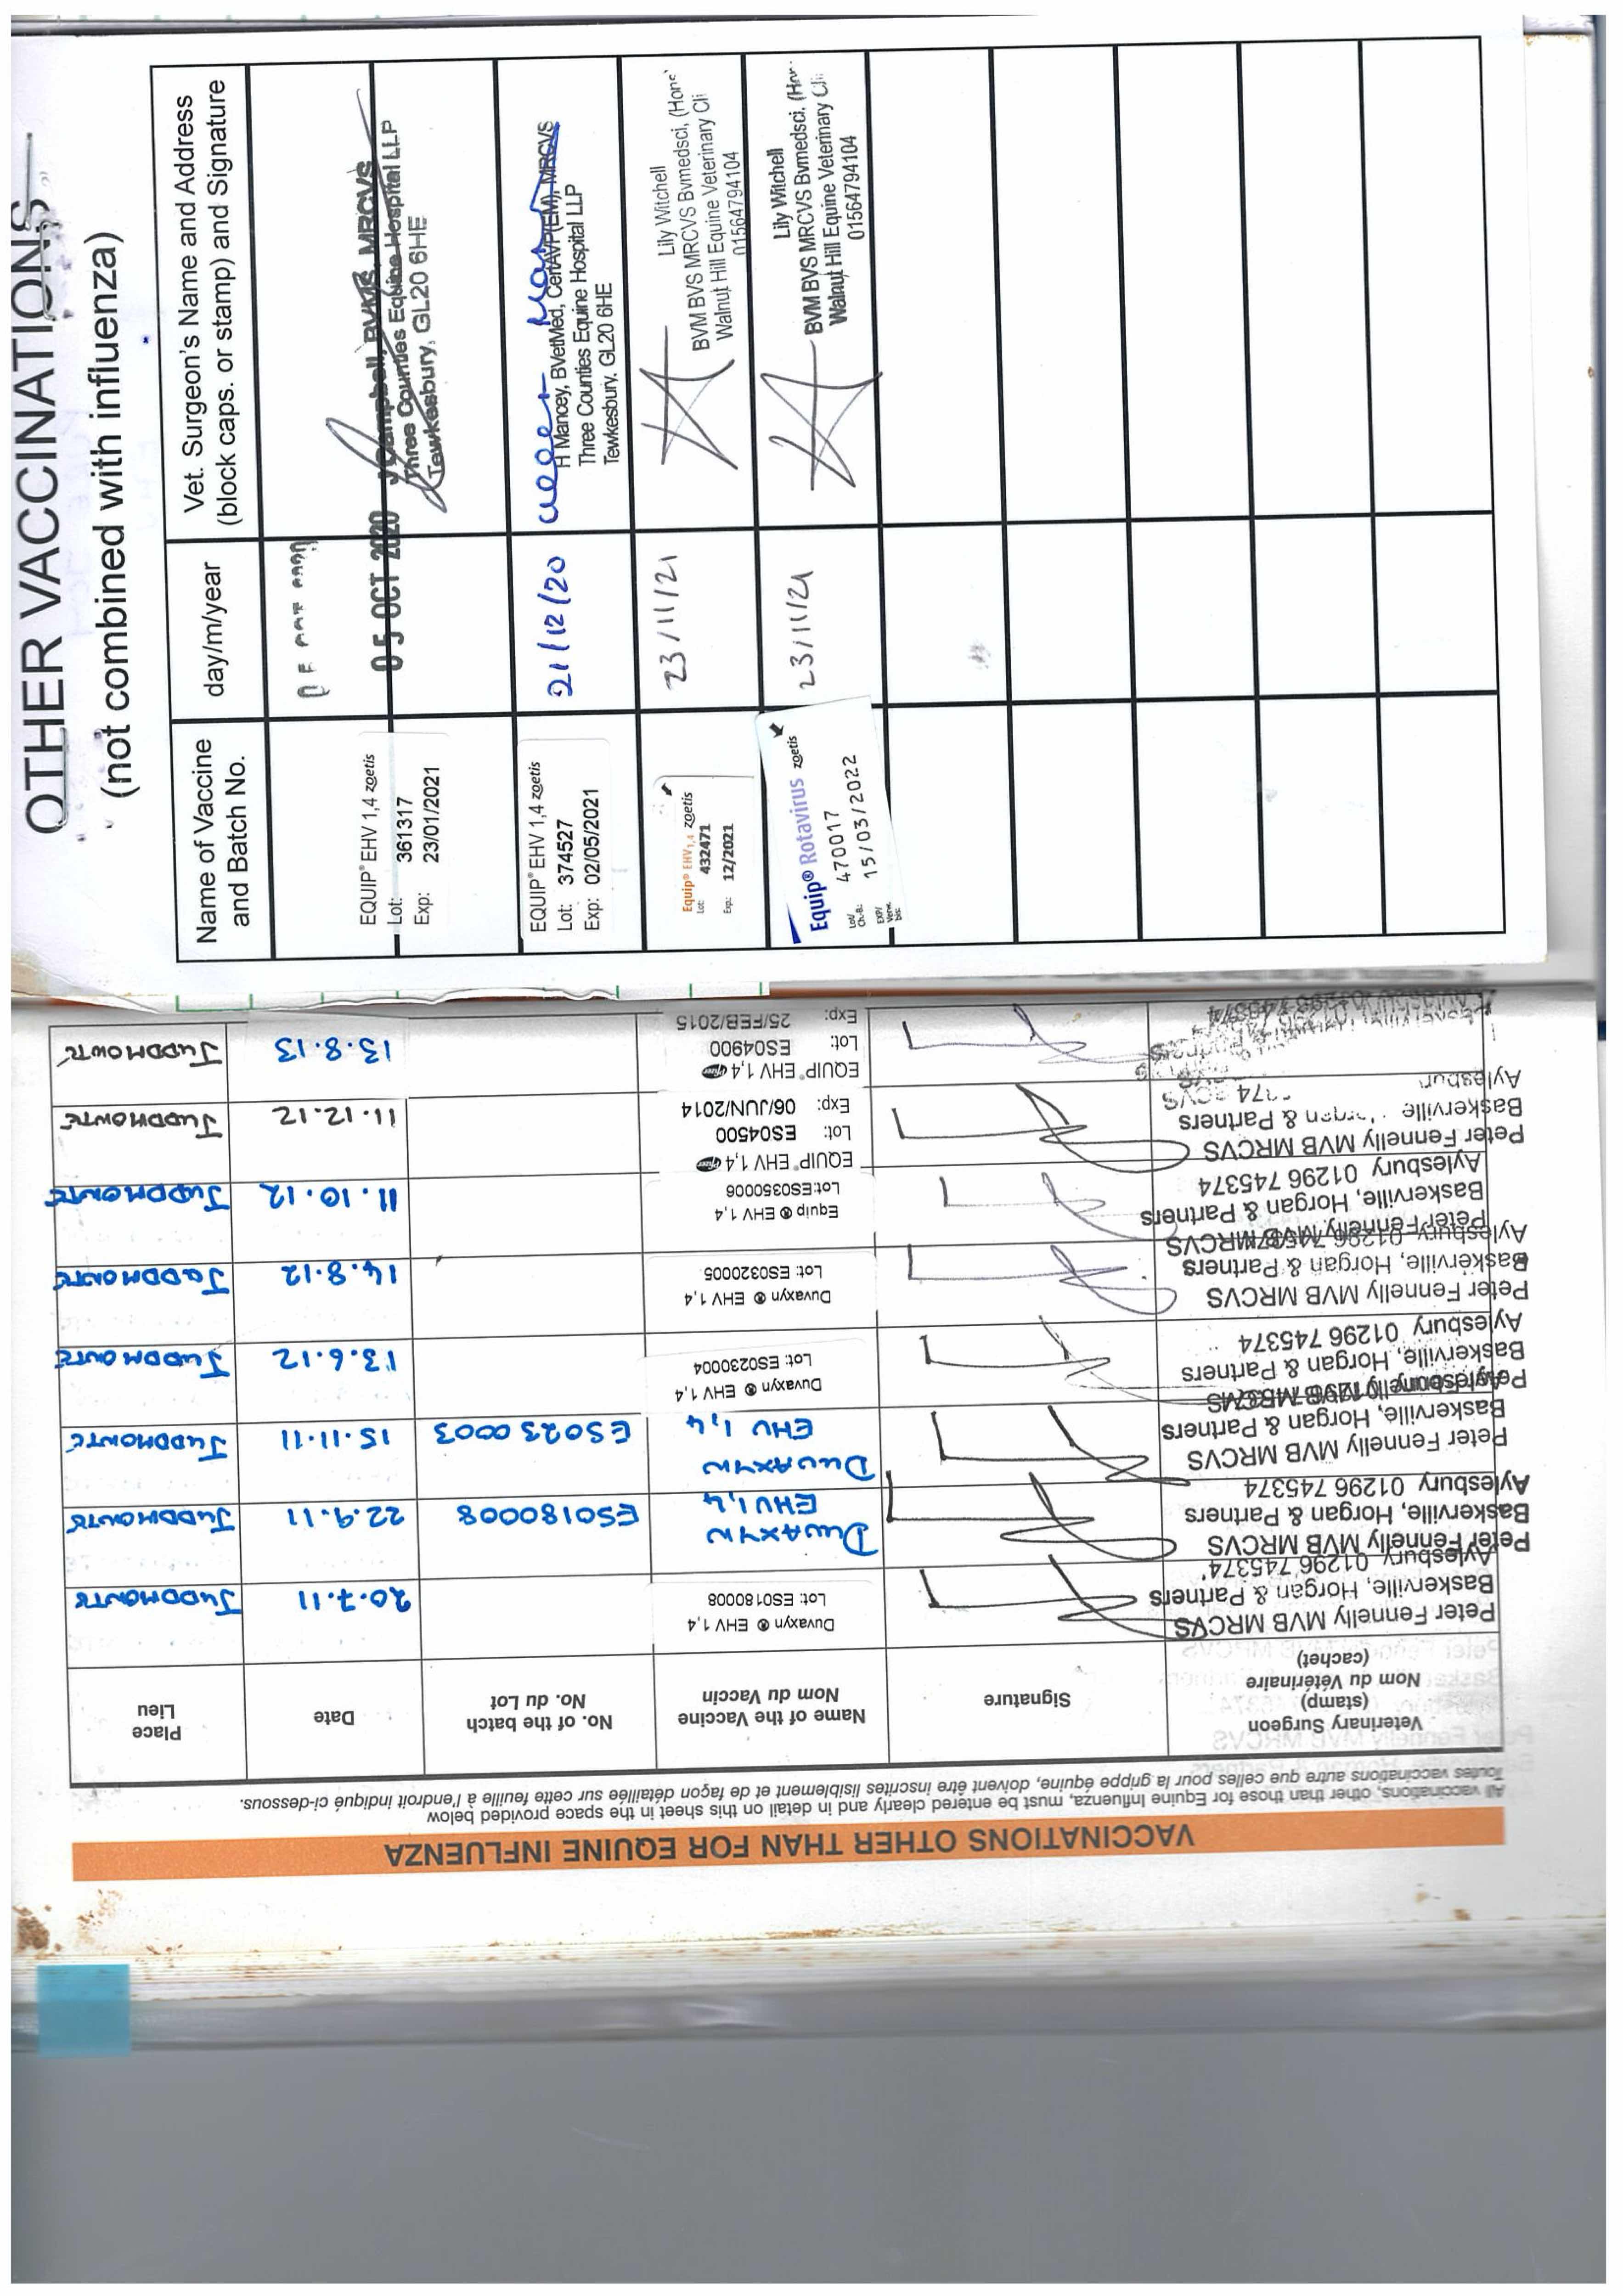 OTHER VACCINATIONS
(not combined with influenza)
Name of Vaccine
and Batch No.
day/m/year
Vet. Surgeon's Name and Address
(block caps. or stamp) and Signature
EQUIP® EHV 1,4 zoetis
Lot: 361317
Exp: 23/01/2021
05 OCT 2020
J Campbell, BVMS, MRCVS
Three Counties Equine Hospital LLP
Tewkesbury, GL20 6HE
EQUIP® EHV 1,4 zoetis
Lot: 374527
Exp: 02/05/2021
21/12/20
H Mancey, BVetMed, CertAVP(EM), MRCVS
Three Counties Equine Hospital LLP
Tewkesbury, GL20 6HE
Equip® EHV1,4 zoetis
Lot: 432471
Exp.: 12/2021
23/11/21
Lily Witchell
BVM BVS MRCVS Bvmedsci, (Hons)
Walnut Hill Equine Veterinary Cli
01564794104
Equip® Rotavirus zoetis
Lot/
Ch.-B.: 470017
EXP/
Verw.
bis: 15/03/2022
23/11/21
Lily Witchell
BVM BVS MRCVS Bvmedsci, (Hon
Walnut Hill Equine Veterinary Cli
01564794104
VACCINATIONS OTHER THAN FOR EQUINE INFLUENZA
All vaccinations, other than those for Equine Influenza, must be entered clearly and in detail on this sheet in the space provided below
Toutes vaccinations autre que celles pour la grippe équine, doivent être inscrites lisiblement et de façon détaillée sur cette feuille à l'endroit indiqué ci-dessous.
Veterinary Surgeon
(stamp)
Nom du Vétérinaire
(cachet)
Signature
Name of the Vaccine
Nom du Vaccin
No. of the batch
No. du Lot
Date
Place
Lieu
Peter Fennelly MVB MRCVS
Baskerville, Horgan & Partners
Aylesbury 01296 745374
Duvaxyn ® EHV 1,4
Lot: ES0180008
20.7.11
JUDDMONTE
Peter Fennelly MVB MRCVS
Baskerville, Horgan & Partners
Aylesbury 01296 745374
DUVAXYN
EHV 1,4
ES0180008
22.9.11
JUDDMONTE
Peter Fennelly MVB MRCVS
Baskerville, Horgan & Partners
Aylesbury 01296 745374
DUVAXYN
EHV 1,4
ES0230003
15.11.11
JUDDMONTE
Peter Fennelly MVB MRCVS
Baskerville, Horgan & Partners
Aylesbury 01296 745374
Duvaxyn ® EHV 1,4
Lot: ES0230004
13.6.12
JUDDMONTE
Peter Fennelly MVB MRCVS
Baskerville, Horgan & Partners
Aylesbury 01296 745374
Duvaxyn ® EHV 1,4
Lot: ES0320005
14.8.12
JUDDMONTE
Peter Fennelly MVB MRCVS
Baskerville, Horgan & Partners
Aylesbury 01296 745374
Equip ® EHV 1,4
Lot:ES0350006
11.10.12
JUDDMONTE
Peter Fennelly MVB MRCVS
Baskerville & Partners
Aylesbury
EQUIP® EHV 1,4 Pfizer
Lot: ES04500
Exp: 06/JUN/2014
11.12.12
JUDDMONTE
EQUIP® EHV 1,4 Pfizer
Lot: ES04900
Exp: 25/FEB/2015
13.8.13
JUDDMONTE